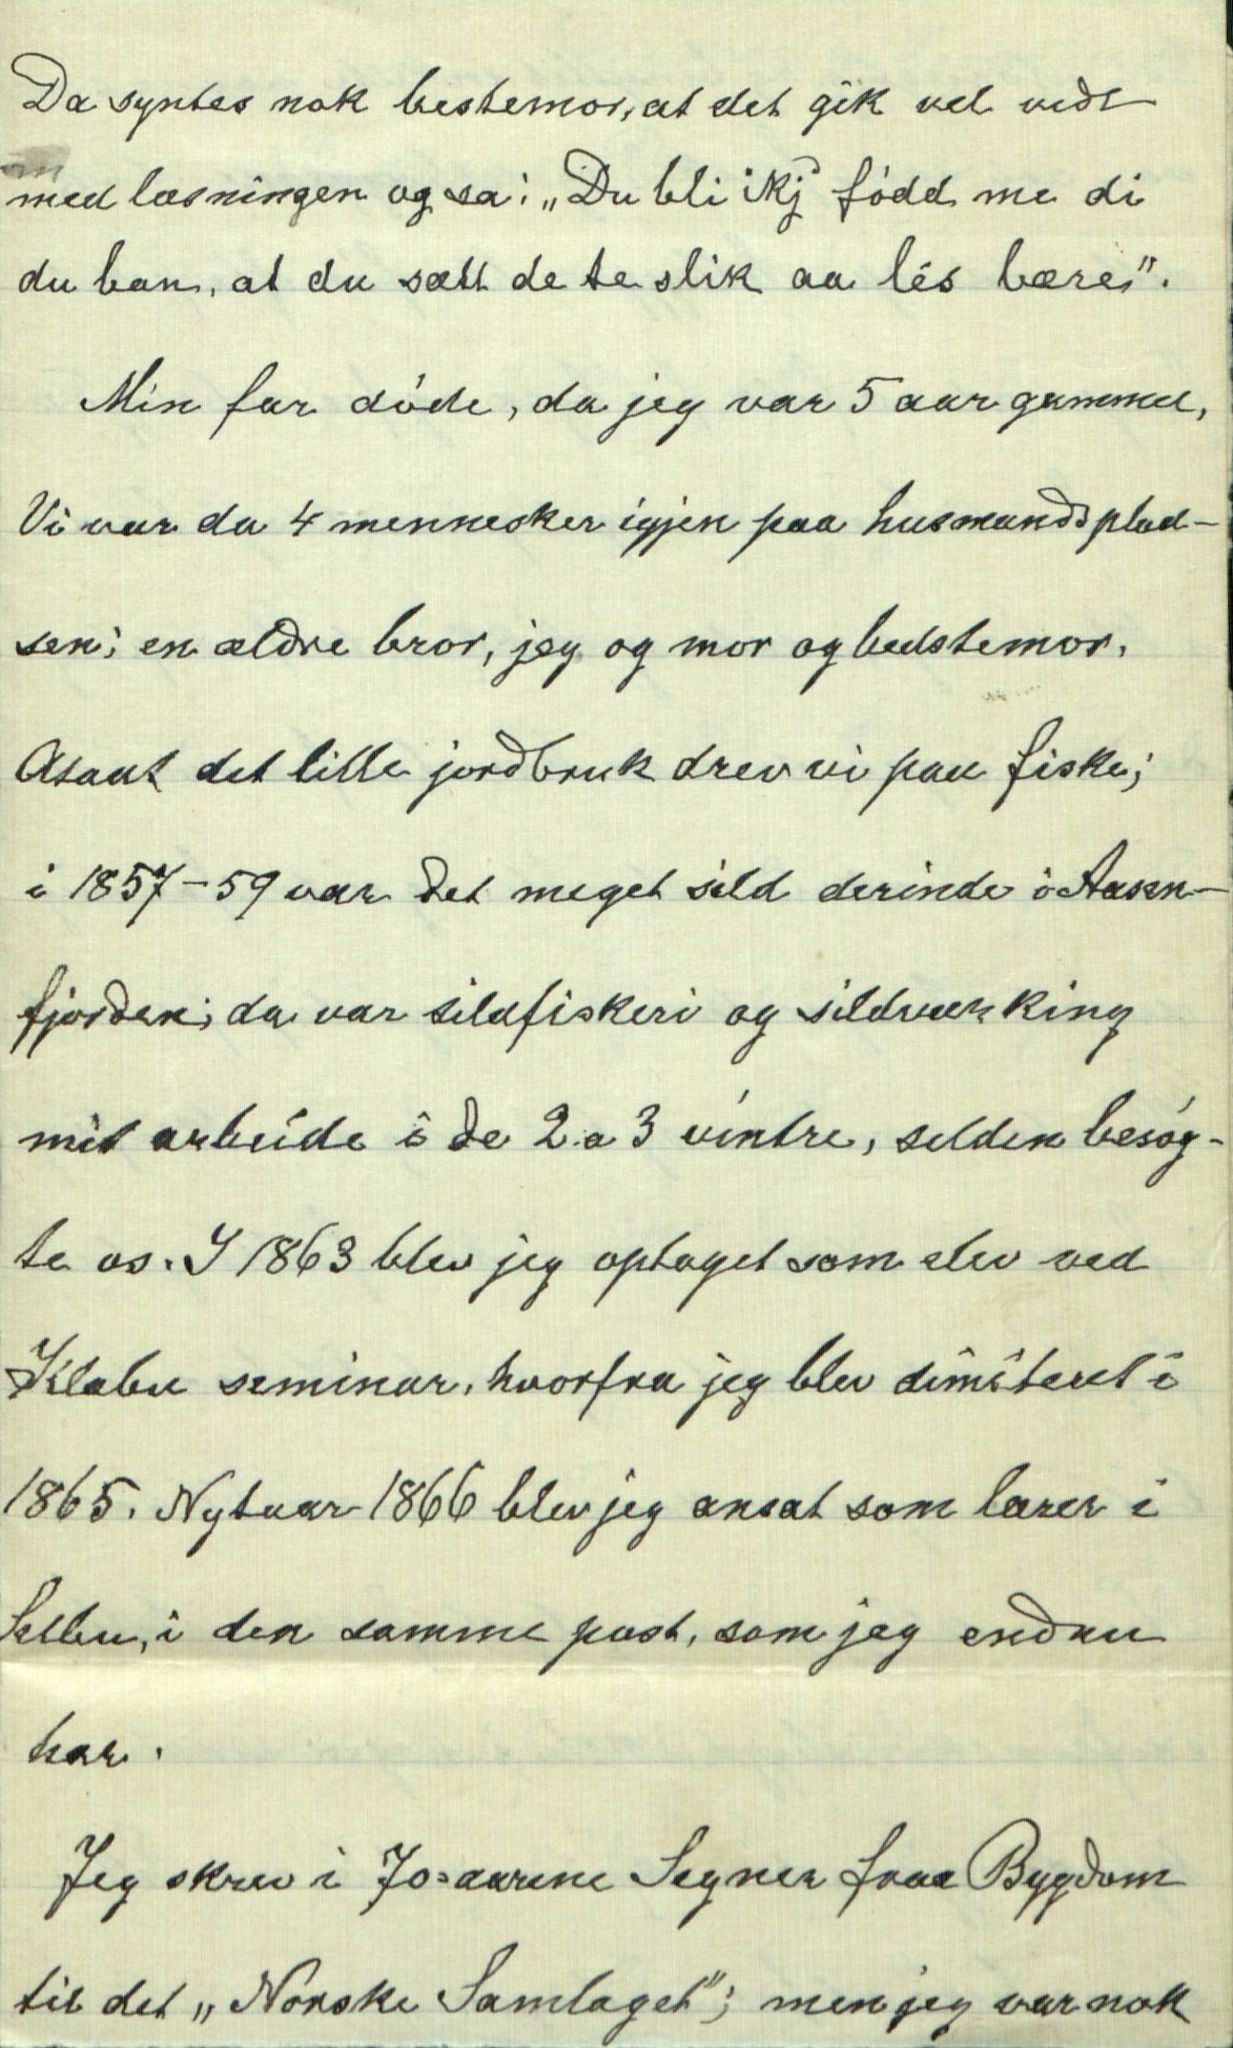 Da syntes nok bestemor, at det gik vel vidt
med læsningen og sa: „Du bli ikj fødd me di
du ban, at du sætt de te slik aa lés bære".
Min far døde, da jeg var 5 aar gammel,
Vi var da 4 mennesker igjen paa husmandsplad-
sen; en ældre bror, jeg og mor og bedstemor.
Atsaat det lille jordbruk drev vi paa fiske;
i 1857-59 var det meget sild derinde i Aasen-
fjorden; da var sildfiskeri og sildvirking
mit arbeide i de 2 a 3 vintre, silden besøg-
te os. I 1863 blev jeg optaget som elev ved
Klæbu seminar, hvorfra jeg blev dimiteret i
1865. Nytaar 1866 blev jeg ansat som lærer i
Selbu, i den samme post, som jeg endnu
har.
Jeg skrev i 70-aarene Segner fraa Bygdom
til det „Norske Samlaget"; men jeg var nok